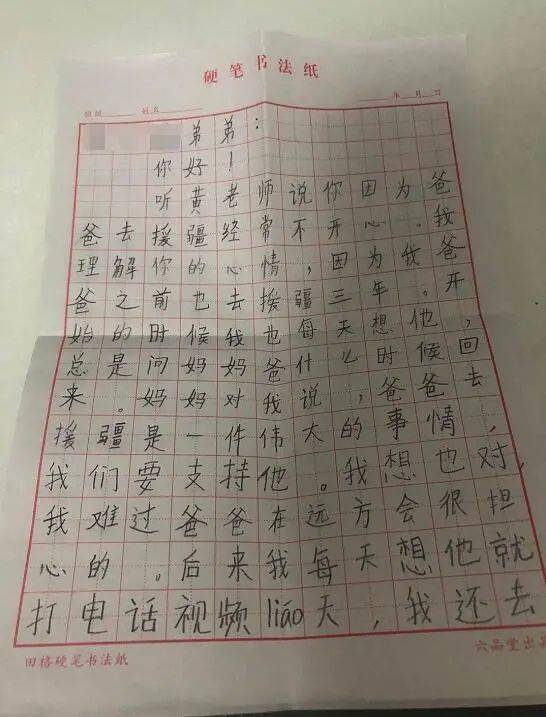 硬笔书法纸
班级 姓名 年 月 日
弟弟:
你好!
听黄老师说你因为爸
爸去援疆经常不开心。我
理解你的心情,因为我爸
爸之前也去援疆三年。开
始的时候我也每天想他,
总是问妈妈爸什么时候回
来。妈妈对我说,爸爸去
援疆是一件伟大的事情,
我们要支持他。我想也对,
我难过爸爸在远方会很担
心的。后来我每天想他就
打电话视频liáo天,我还去
田格硬笔书法纸
六品堂出品